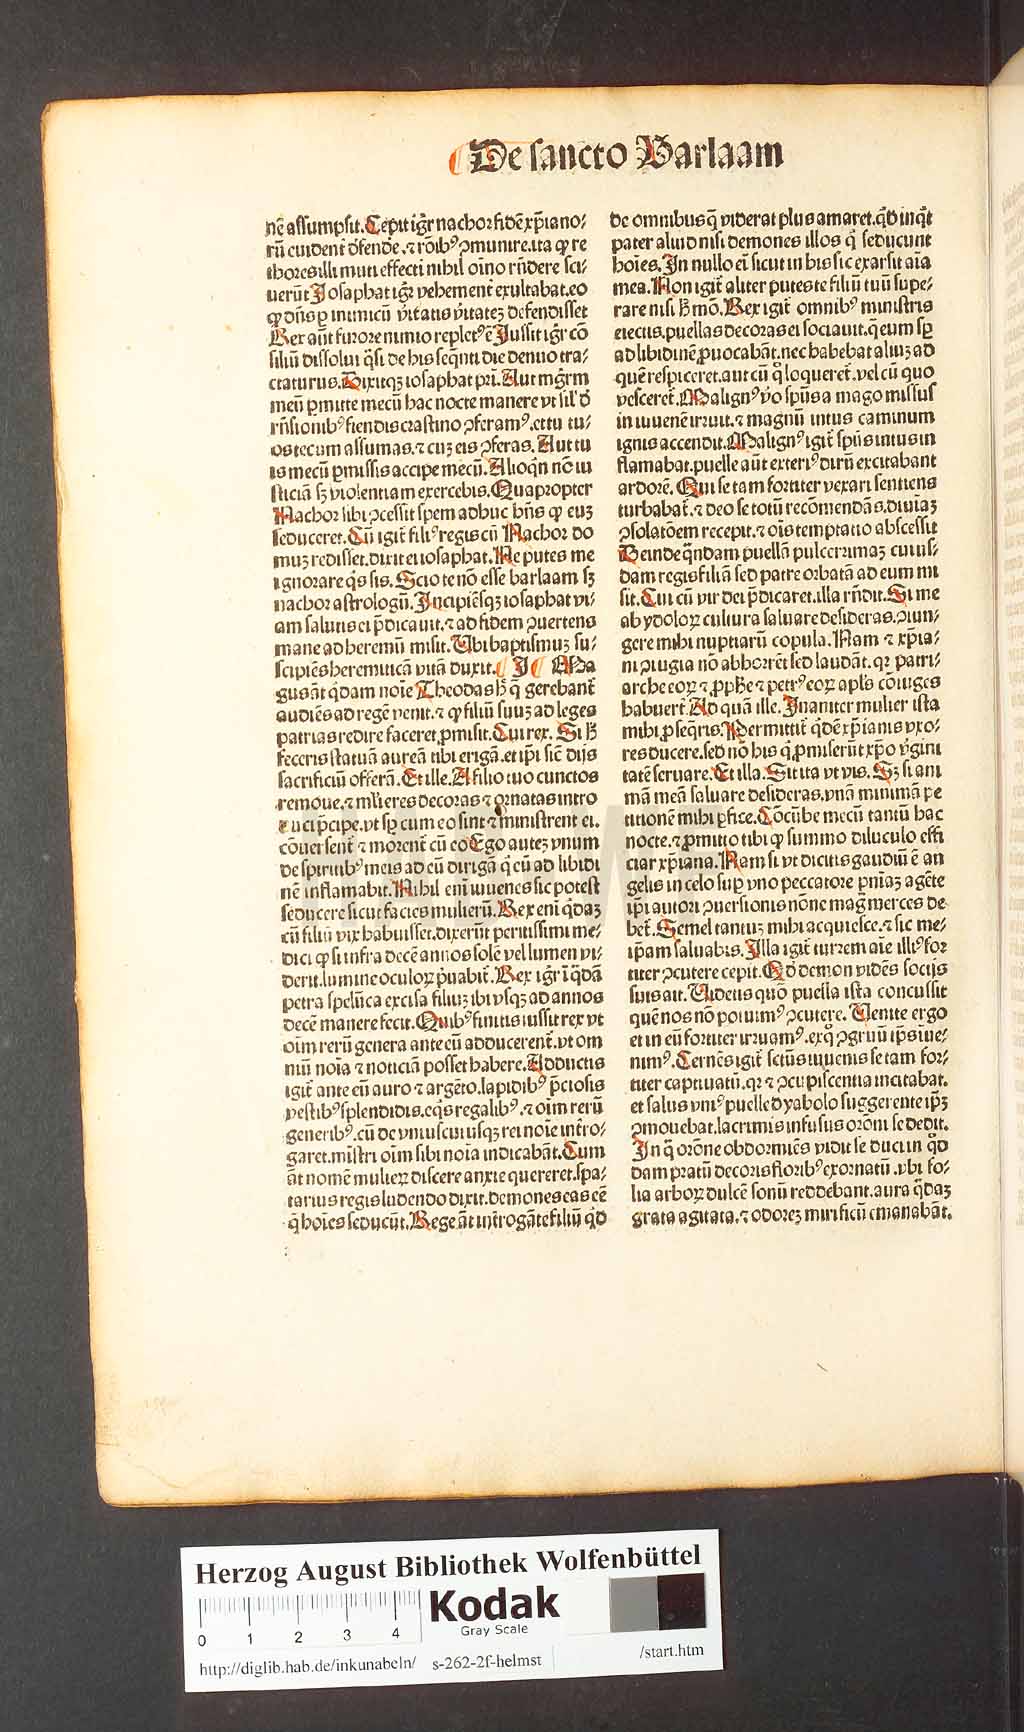 De sancto Barlaam
nē assumpsit. Cepit igr̄ nachor fidē xp̄iano⸗
rū euident̄ d̄fende. ⁊ rōib⁹ ꝯmunire. ita ꝙ re
thores illi muti effecti nihil oīno rn̄dere sci⸗
uerūt Josaphat igr̄ vehement̄ exultabat. eo
ꝙ dn̄s ꝑ inimicū v̄itatis v̄itateꝫ defendisset
Rex aūt furore nimio replet⁹ ē Jussit igr̄ cō
siliū dissolui q̄si de his seq̄nti die denuo tra⸗
ctaturus. Dixitqꝫ iosaphat pr̄i. Aut mgr̄m
meū ꝑmitte mecū hac nocte manere vt sil̓ d̓
rn̄sionib⁹ fiendis crastino ꝯferam⁹. et tu tu⸗
os tecum assumas. ⁊ cuꝫ eis ꝯferas. Aut tu
is mecū ꝑmissis accipe mecū. Alioqn̄ nō iu
sticiā sꝫ violentiam exercebis. Quapropter
Nachor sibi ꝯcessit spem adhuc hn̄s ꝙ euꝫ
seduceret. Cū igit̄ fili⁹ regis cū Nachor do
muꝫ redisset. dixit ei iosaphat. Ne putes me
ignorare q̓s sis. Scio te nō esse barlaam sꝫ
nachor astrologū. Incipiēsqꝫ iosaphat vi⸗
am salutis ei p̄dicauit. ⁊ ad fidem ꝯuertens
mane ad heremū misit. Ubi baptismuꝫ su⸗
scipiēs heremiticā vitā duxit. J Ma
gus āt q̓dam noīe Theodas h̄ q̄ gerebant̄
audiēs ad regē venit. ⁊ ꝙ filiū suuꝫ ad leges
patrias redire faceret. ꝓmisit. Cui rex. Si h̄
feceris statuā aureā tibi erigā. et ip̄i sic̄ dijs
sacrificiū offerā. Et ille. A filio tuo cunctos
remoue. ⁊ ml̄ieres decoras ⁊ ornatas intro
duci p̄cipe. vt sꝑ cum eo sint ⁊ ministrent ei.
cōuersent̄ ⁊ morent̄ cū eo Ego auteꝫ vnum
de spiritib⁹ meis ad eū dirigā q̓ eū ad libidi
nē inflamabit. Nihil enī iuuenes sic potest
seducere sicut facies mulierū. Rex enī q̓daꝫ
cū filiū vix habuisset. dixerūt peritissimi me⸗
dici ꝙ si infra decē annos solē vel lumen vi⸗
derit. lumine oculoꝝ p̓uabit̄. Rex igr̄ ī q̓dā
petra spelūca excisa filiuꝫ ibi vsqꝫ ad annos
decē manere fecit. Quib⁹ finitis iussit rex vt
oīm rerū genera ante eū adducerent̄. vt om
niū noīa ⁊ noticiā posset habere. Adductis
igit̄ ante eū auro ⁊ argēto. lapidib⁹ p̄ciosis
vestib⁹ splendidis. eq̓s regalib⁹. ⁊ oīm rerū
generib⁹. cū de vniuscuiusqꝫ rei noīe int̓ro⸗
garet. mīstri oīm sibi noīa indicabāt. Cum
āt nomē mulieꝝ discere anxie quereret. spa⸗
tarius regis ludendo dixit. demones eas eē
q̄ hoīes seducūt. Rege āt int̓rogāte filiū q̓d
de omnibus q̄ viderat plus amaret. q̓d inq̄t
pater aliud nisi demones illos q̓ seducunt
hoīes. In nullo eī sicut in his sic exarsit aīa
mea. Non igit̄ aliter putes te filiū tuū supe⸗
rare nisi h̓ mō. Rex igit̄ omnib⁹ ministris
eiectis. puellas decoras ei sociauit. q̄ eum sꝑ
ad libidinē ꝓuocabāt. nec habebat aliuꝫ ad
quē respiceret. aut cū q̓ loqueret̄. vel cū quo
vesceret̄. Malign⁹ v̓o spūs a mago missus
in iuuenē irruit. ⁊ magnū intus caminum
ignis accendit. Malign⁹ igit̄ spūs intus in
flamabat. puelle aūt exteri⁹ dirū excitabant
ardorē. Qui se tam fortiter vexari sentiens
turbabat̄. ⁊ deo se totū recōmendās. diuīaꝫ
ꝯsolatōem recepit. ⁊ oīs temptatio abscessit
Deinde q̄ndam puellā pulcerrimaꝫ cuius⸗
dam regis filiā sed patre orbatā ad eum mi
sit. Cui cū vir dei p̄dicaret. illa rn̄dit. Si me
ab ydoloꝝ cultura saluare desideras. ꝯiun⸗
gere mihi nuptiarū copula. Nam ⁊ xp̄ia⸗
ni ꝯiugia nō abhorrēt sed laudāt. qꝛ patri⸗
arche eoꝝ ⁊ ꝓphe ⁊ petr⁹ eoꝝ apl̄s cōiuges
habuert̄. Ad quā ille. Inaniter mulier ista
mihi ꝓseq̄ris. Permittit̄ q̓dē xp̄ianis vxo⸗
res ducere. sed nō his q̓ ꝓmiserūt xp̄o v̓gini
tatē seruare. Et illa. Sit ita vt vis. Sꝫ si ani
mā meā saluare desideras. vnā minimā pe
titionē mihi ꝑfice. Cōcūbe mecū tantū hac
nocte. ⁊ ꝓmitto tibi ꝙ summo diluculo effi
ciar xp̄iana. Nam si vt dicitis gaudiū ē an
gelis in celo suꝑ vno peccatore pn̄iaꝫ agēte
ip̄i autori ꝯuersionis nōne mag̓ merces de
bet̄. Semel tantuꝫ mihi acquiesce. ⁊ sic me⸗
ip̄am saluabis. Illa igit̄ turrem aīe illi⁹ for
titer ꝯcutere cepit. Qd̓ demon vidēs socijs
suis ait. Videtis quō puella ista concussit
quē nos nō potuim⁹ ꝯcutere. Venite ergo
et in eū fortiter irruam⁹. ex q̓ ꝯgruū ip̄s īue⸗
nim⁹. Cernēs igit̄ sctūs iuuenis se tam for⸗
titer captiuatū. qꝛ ⁊ ꝯcupiscentia incitabat.
et salus vni⁹ puelle dyabolo suggerente ip̄ꝫ
ꝯmouebat. lacrimis infusus orōni se dedit.
In q̄ orōne obdormiēs vidit se duci in q̓d
dam pratū decoris florib⁹ exornatū. vbi fo⸗
lia arboꝝ dulcē sonū reddebant. aura q̄daꝫ
grata agitata. ⁊ odoreꝫ mirificū emanabāt.
HAB WF
Herzog August Bibliothek Wolfenbüttel
0 1 2 3 4
Kodak
Gray Scale
http://diglib.hab.de/inkunabeln/ s-262-2f-helmst /start.htm